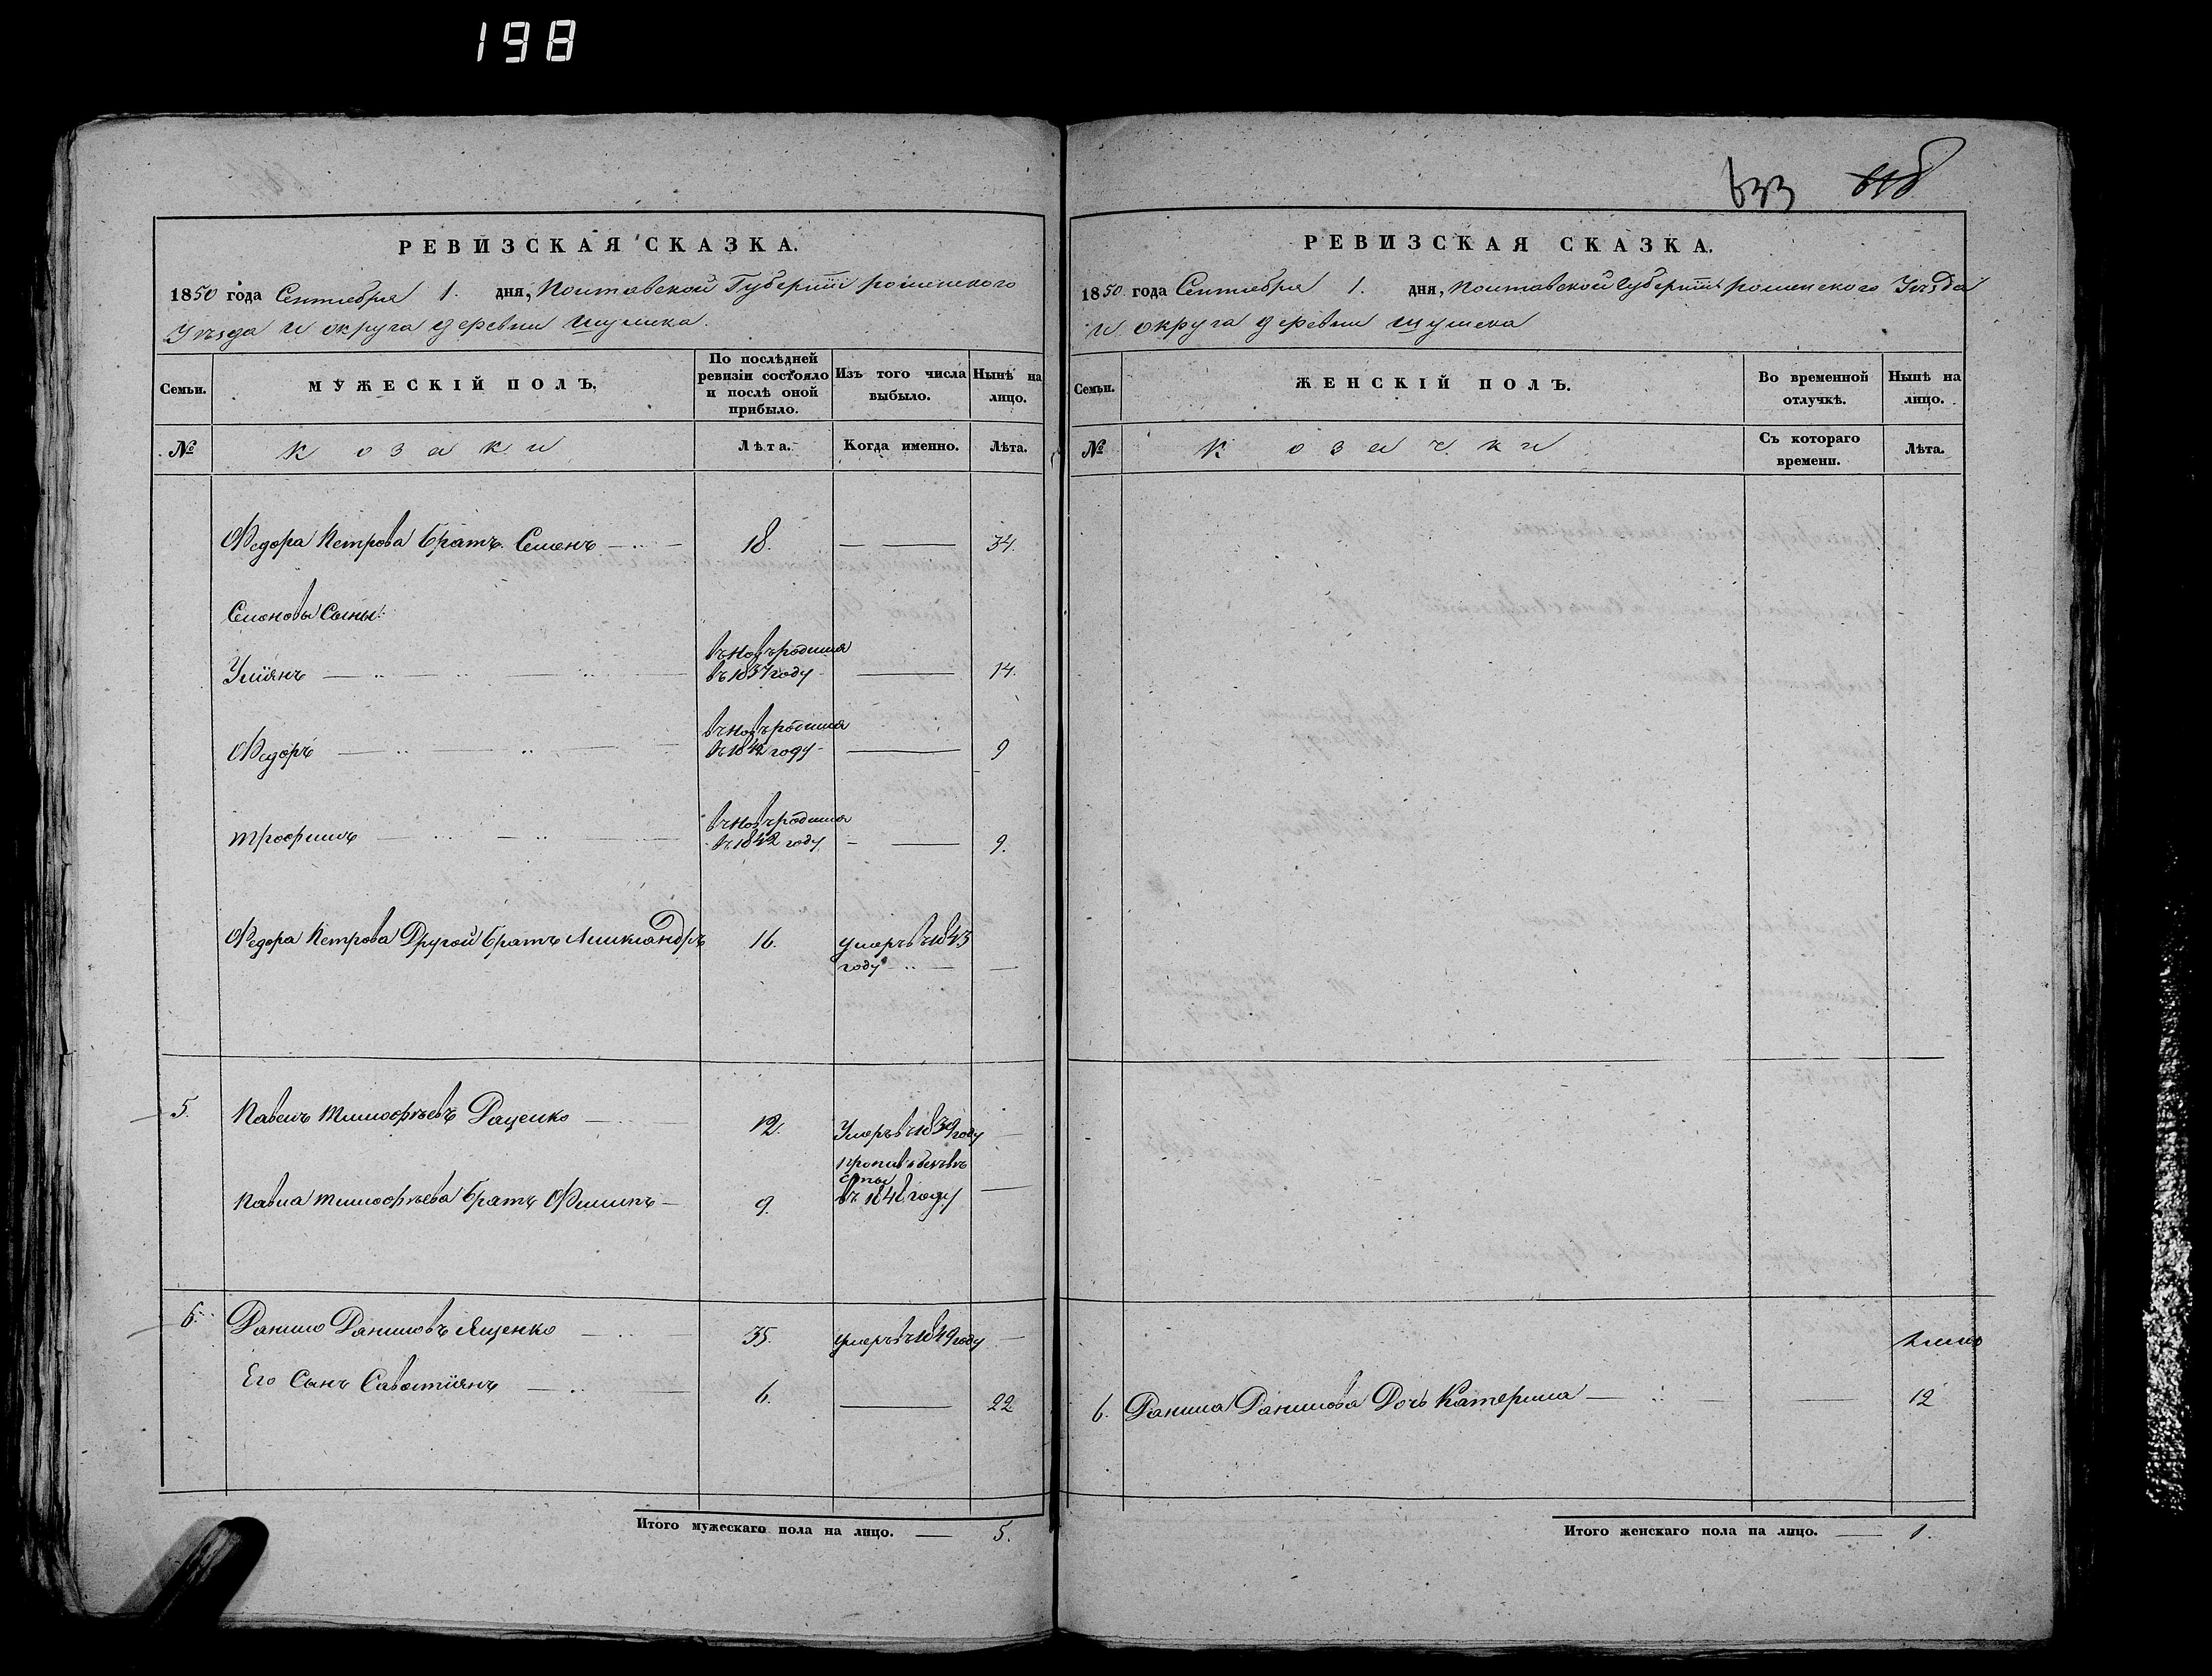 198
633 618
РЕВИЗСКАЯ СКАЗКА.
1850 года Сентября 1. дня, Полтавской Губерніи роменского
Уѣзда и округа деревни шумика.
Семьи. МУЖЕСКІЙ ПОЛЪ. По послѣдней ревизіи состояло и послѣ оной прибыло. Изъ того числа выбыло. Нынѣ на лицо.
№ Козаки Лѣта. Когда именно. Лѣта.
Федора Петрова братъ Семенъ 18. 34.
Семеновы Сыны:
Уліянъ въ 1837 году 14.
Федоръ въ 1842 году 9
трофимъ въ 1842 году 9.
Федора Петрова Другой братъ Аликсандръ 16. умеръ въ 1843
году
5. Павелъ тимофѣевъ Раценко 12. Умеръ въ 1839 году
Павла тимофѣева братъ Филипъ 9. въ 1848 году
6. Данило Даниловъ Яценко 35. умеръ въ 1849 году
Его Сынъ Савостіянъ 6. 22
Итого мужескаго пола на лицо. 5.
РЕВИЗСКАЯ СКАЗКА.
1850 года Сентября 1. дня, Полтавской Губерніи роменского Уѣзда
и округа деревни
Семьи. ЖЕНСКІЙ ПОЛЪ. Во временной отлучкѣ. Нынѣ на лицо.
№ Козачки Съ котораго времени. Лѣта.
6. Данила Данилова Дочь Катерина 12
Итого женскаго пола на лицо. 1.